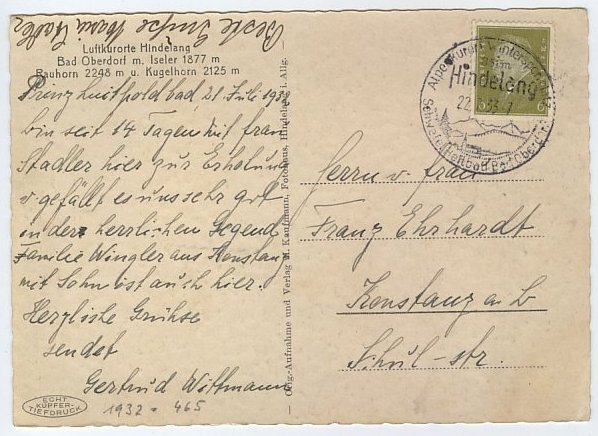 Beste Grüße Maria Stadler
Luftkurorte Hindelang
Bad Oberdorf m. Iseler 1877 m
Rauhorn 2248 m u. Kugelhorn 2125 m
Prinz Luitpoldbad 21. Juli 1932
bin seit 14 Tagen mit frau
Stadler hier zur Erholung
u gefällt es uns sehr gut
in der herrlichen Gegend
Familie Wingler aus Konstanz
mit Sohn ist auch hier.
Herzliche Grühse
sendet
Gertrud Wittmann
ECHT
KUPFER-
TIEFDRUCK
1932 . 465
Orig.-Aufnahme und Verlag M. Kaufmann, Fotohaus, Hindelang i. Allg.
Hindelang
22.
6
Herrn u. frau
Franz Ehrhardt
Konstanz a. b
Schul-str.